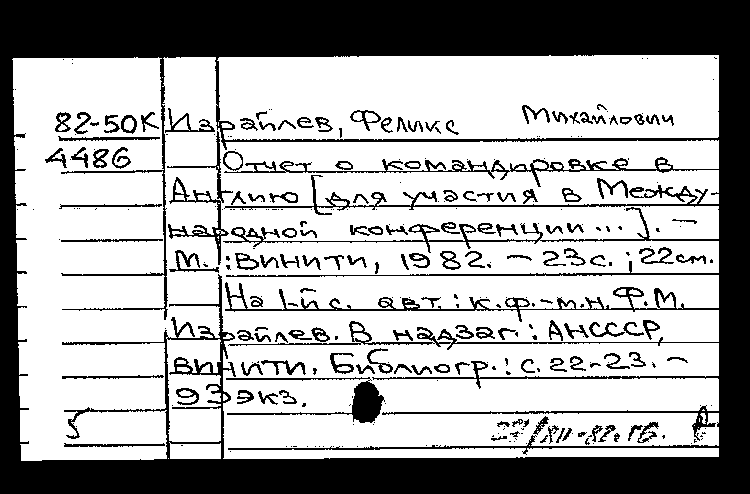 82-50К Израйлев, Феликс Михайлович
4486 Отчет о командировке в
Англию [для участия в Между-
народной конференции...]. –
М.: ВИНИТИ, 1982. – 23 с.; 22 см.
На 1-й с. авт.: к.ф.-м.н. Ф.М.
Израйлев. В надзаг.: АНСССР,
ВИНИТИ. Библиогр.: с. 22-23. –
93 экз.
5